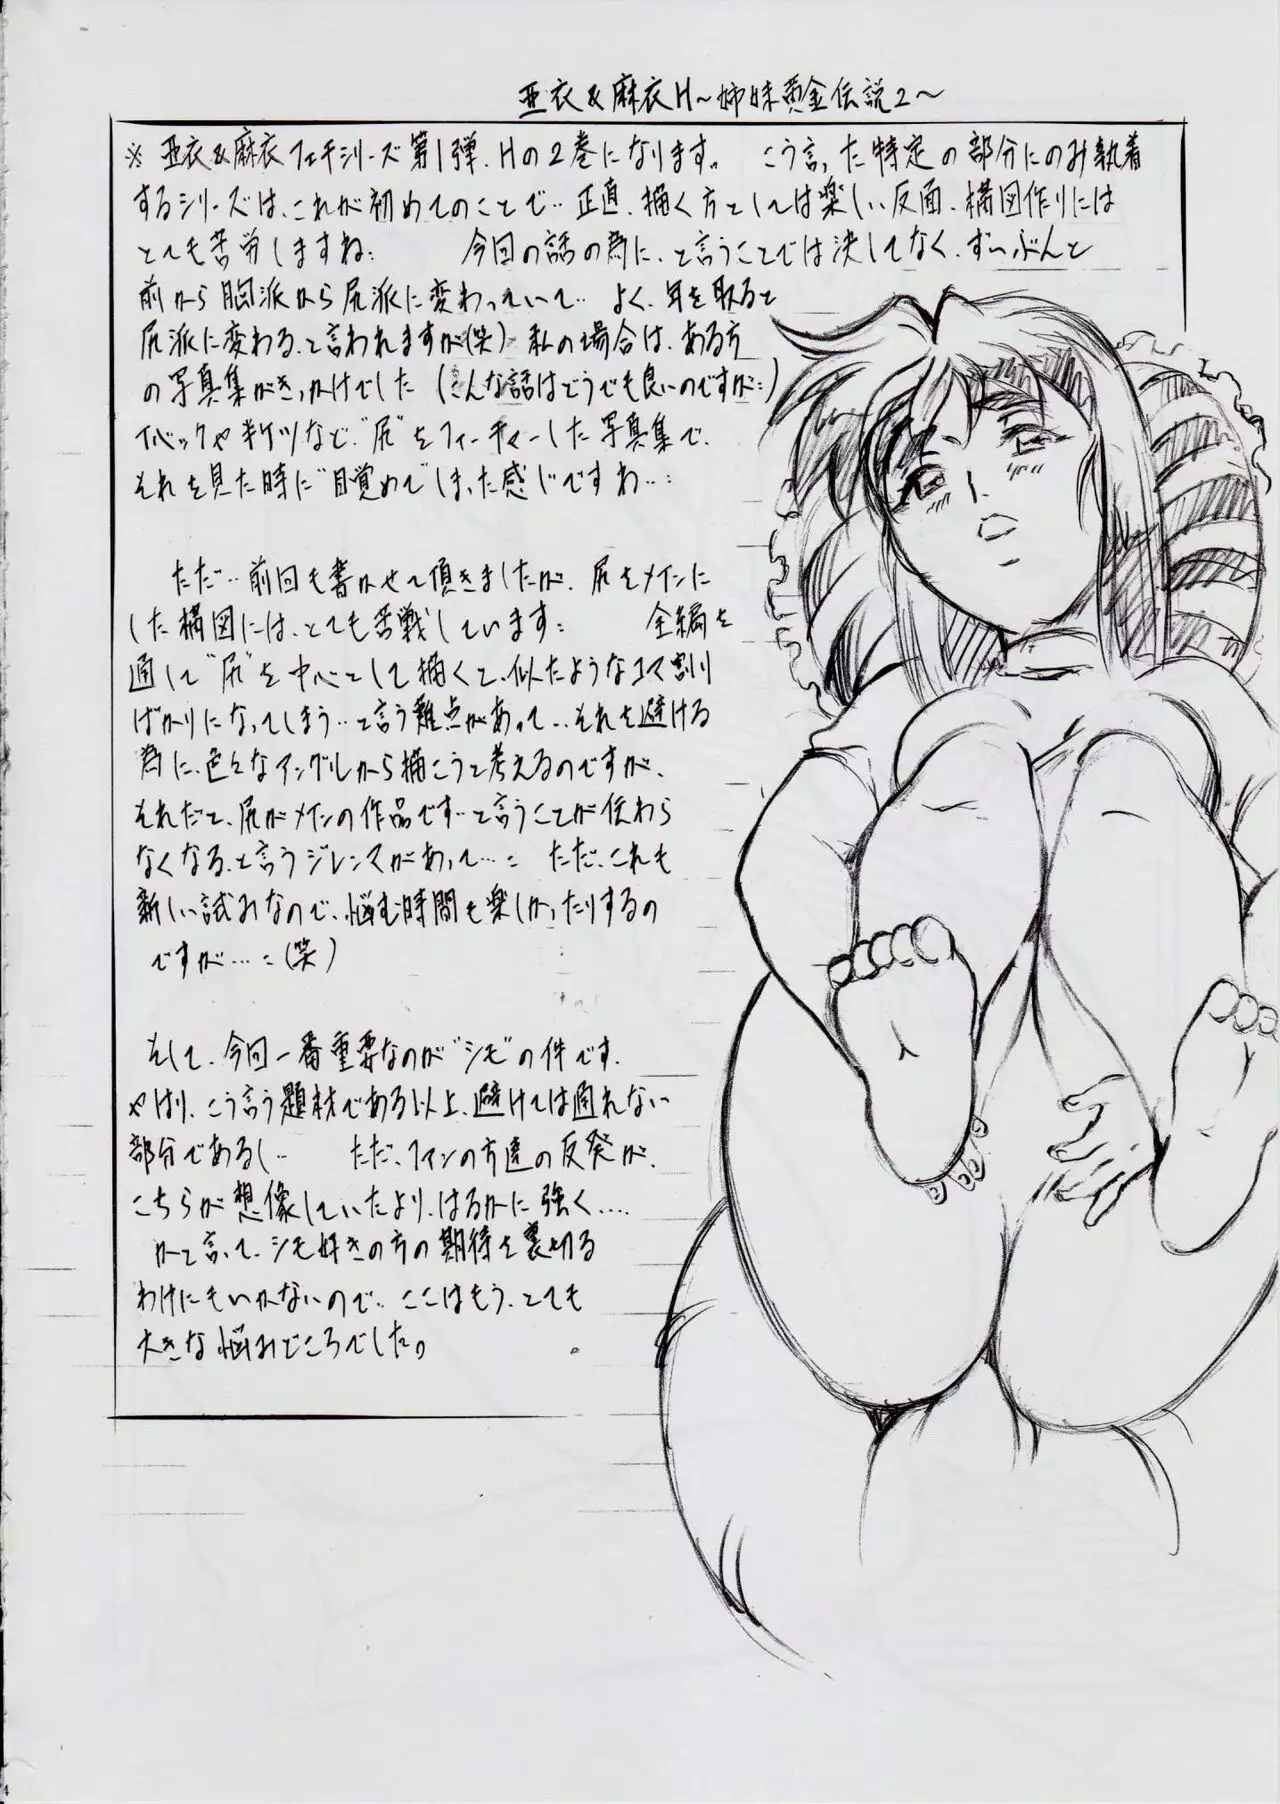 亜衣&麻衣H〜姉妹黄金伝説2〜
※ 亜衣&麻衣フェチシリーズ第1弾、Hの2巻になります。 こう言った特定の部分にのみ執着
するシリーズは、これが初めてのことで‥正直、描く方としては楽しい反面、構図作りには
とても苦労しますね: 今回の話の為に、と言うことでは決してなく、ずいぶんと
前から胸派から尻派に変わっていて‥ よく、年を取ると
尻派に変わる、と言われますが(笑) 私の場合は、ある方
の写真集がきっかけでした (こんな話はどうでも良いのですが:)
Tバックや半ケツなど、"尻"をフィーチャーした写真集で、
それを見た時に"目覚めてしまった感じですね‥:
ただ‥前回も書かせて頂きましたが、尻をメインに
した構図には、とても苦戦しています: 全編を
通して"尻"を中心として描くと、似たようなコマ割り
ばかりになってしまう‥と言う難点があって‥それを避ける
為に、色々なアングルから描こうと考えるのですが、
それだと、尻がメインの作品です‥と言うことが伝わら
なくなる、と言うジレンマがあって‥: ただ、これも
新しい試みなので、悩む時間も楽しかったりするの
ですが…:(笑)
そして、今回一番重要なのが"シモ"の件です、
やはり、こう言う題材である以上、避けては通れない
部分であるし‥ ただ、ファンの方達の反発が、
こちらが想像していたより、はるかに強く‥‥
かと言って、シモ好きの方の期待を裏切る
わけにもいかないので、ここはもう、とても
大きな悩みどころでした。
4